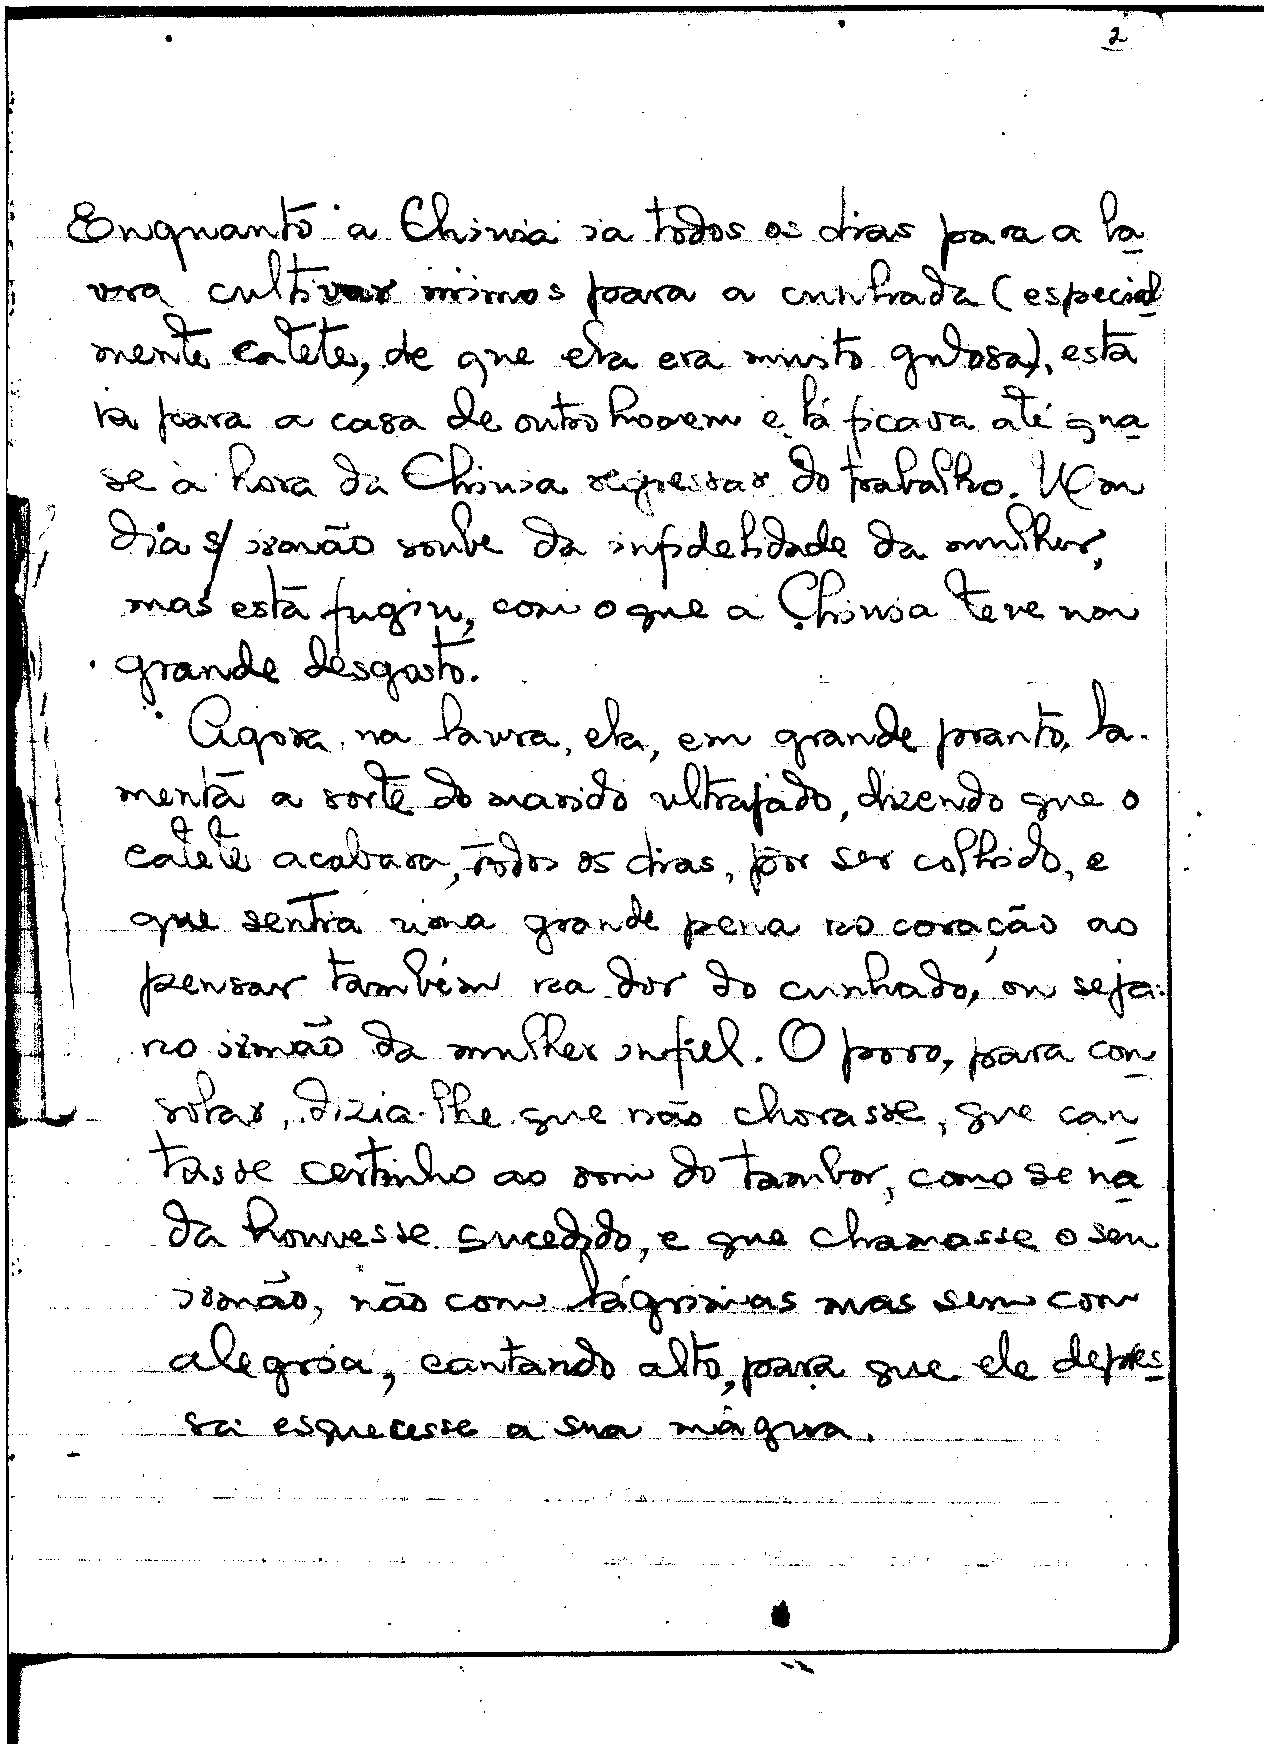 2
Enquanto a Chinia ia todos os dias para a la
vra cultivar mimos para a cunhada (especial
mente catete, de que ela era muito gulosa), esta
ia para a casa de outro homem e lá ficava até qua
se à hora da Chinia regressar do trabalho. Um
dia s/ irmão soube da infidelidade da mulher,
mas esta fugiu, com o que a Chinia teve um
grande desgosto.
Agora, na lavra, ela, em grande pranto, la-
menta a sorte do marido ultrajado, dizendo que o
catete acabara, todos os dias, por ser colhido, e
que sentia uma grande pena no coração ao
pensar também na dor do cunhado, ou seja
no irmão da mulher infiel. O povo, para con
solar, dizia-lhe que não chorasse, que can
tasse certinho ao som do tambor, como se na
da houvesse sucedido, e que chamasse o seu
irmão, não com lágrimas mas sim com
alegria, cantando alto, para que ele depres
sa esquecesse a sua mágua.